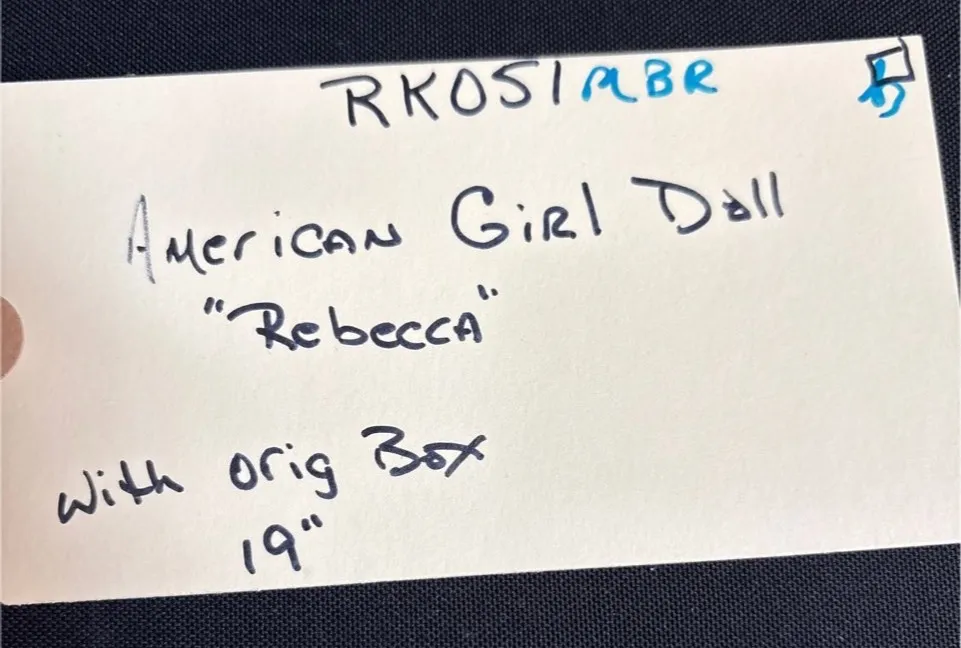 RK051 MBR
American Girl Doll
"Rebecca"
with orig Box
19"